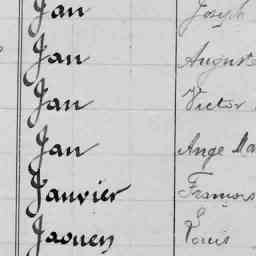 Jan Joseph
Jan Auguste
Jan Victor
Jan Ange Ma
Janvier François
Jaouen Louis